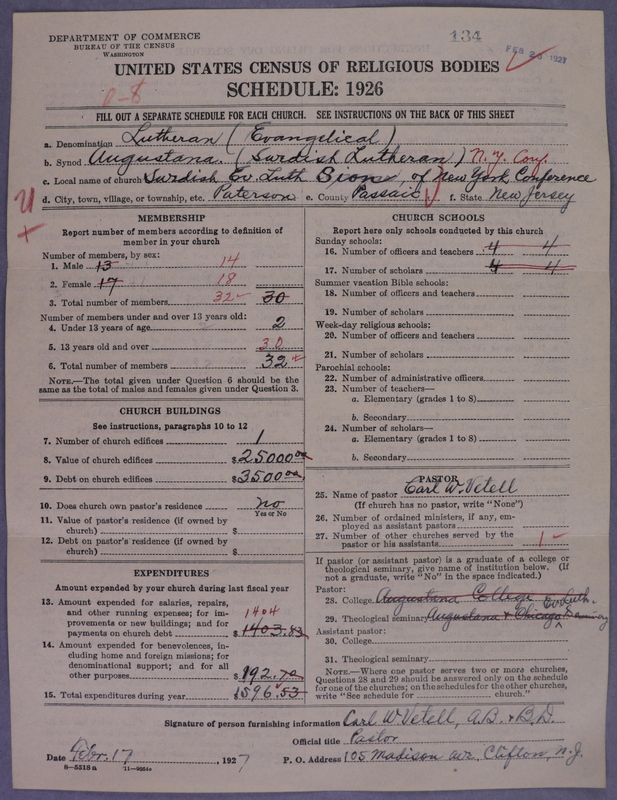 DEPARTMENT OF COMMERCE
BUREAU OF THE CENSUS
WASHINGTON
134
FEB 23 1927
UNITED STATES CENSUS OF RELIGIOUS BODIES
SCHEDULE: 1926
0-8
FILL OUT A SEPARATE SCHEDULE FOR EACH CHURCH. SEE INSTRUCTIONS ON THE BACK OF THIS SHEET
a. Denomination Lutheran (Evangelical)
b. Synod Augustana (Swedish Lutheran) N.Y. Conf.
c. Local name of church Swedish Ev. Luth Sion, of New York Conference
d. City, town, village, or township, etc. Paterson e. County Passaic f. State New Jersey
MEMBERSHIP
Report number of members according to definition of member in your church
Number of members, by sex:
1. Male 13 14
2. Female 17 18
3. Total number of members 32 30
Number of members under and over 13 years old:
4. Under 13 years of age 2
5. 13 years old and over 30
6. Total number of members 32
NOTE.—The total given under Question 6 should be the same as the total of males and females given under Question 3.
CHURCH BUILDINGS
See instructions, paragraphs 10 to 12
7. Number of church edifices 1
8. Value of church edifices $25000 00
9. Debt on church edifices $3500 00
10. Does church own pastor's residence? no
Yes or No
11. Value of pastor's residence (if owned by church) $
12. Debt on pastor's residence (if owned by church) $
EXPENDITURES
Amount expended by your church during last fiscal year
13. Amount expended for salaries, repairs, and other running expenses; for improvements or new buildings; and for payments on church debt 1404 $1403.83
14. Amount expended for benevolences, including home and foreign missions; for denominational support; and for all other purposes $192.70
15. Total expenditures during year 1596.53
CHURCH SCHOOLS
Report here only schools conducted by this church
Sunday schools:
16. Number of officers and teachers 4 4
17. Number of scholars 4 4
Summer vacation Bible schools:
18. Number of officers and teachers
19. Number of scholars
Week-day religious schools:
20. Number of officers and teachers
21. Number of scholars
Parochial schools:
22. Number of administrative officers
23. Number of teachers—
a. Elementary (grades 1 to 8)
b. Secondary
24. Number of scholars—
a. Elementary (grades 1 to 8)
b. Secondary
PASTOR
25. Name of pastor Carl W. Vetell
(If church has no pastor, write "None")
26. Number of ordained ministers, if any, employed as assistant pastors
27. Number of other churches served by the pastor or his assistants 1
If pastor (or assistant pastor) is a graduate of a college or theological seminary, give name of institution below. (If not a graduate, write "No" in the space indicated.)
Pastor:
28. College Augustana College
29. Theological seminary Augustana & Chicago Ev. Luth. Seminary
Assistant pastor:
30. College
31. Theological seminary
NOTE.—Where one pastor serves two or more churches, Questions 28 and 29 should be answered only on the schedule for one of the churches; on the schedules for the other churches, write "See schedule for church."
Signature of person furnishing information Carl W. Vetell, A.B. & B.D.
Official title Pastor
Date Febr. 17, 1927 P. O. Address 105 Madison ave, Clifton, N.J.
8—5518 a 11—9054a